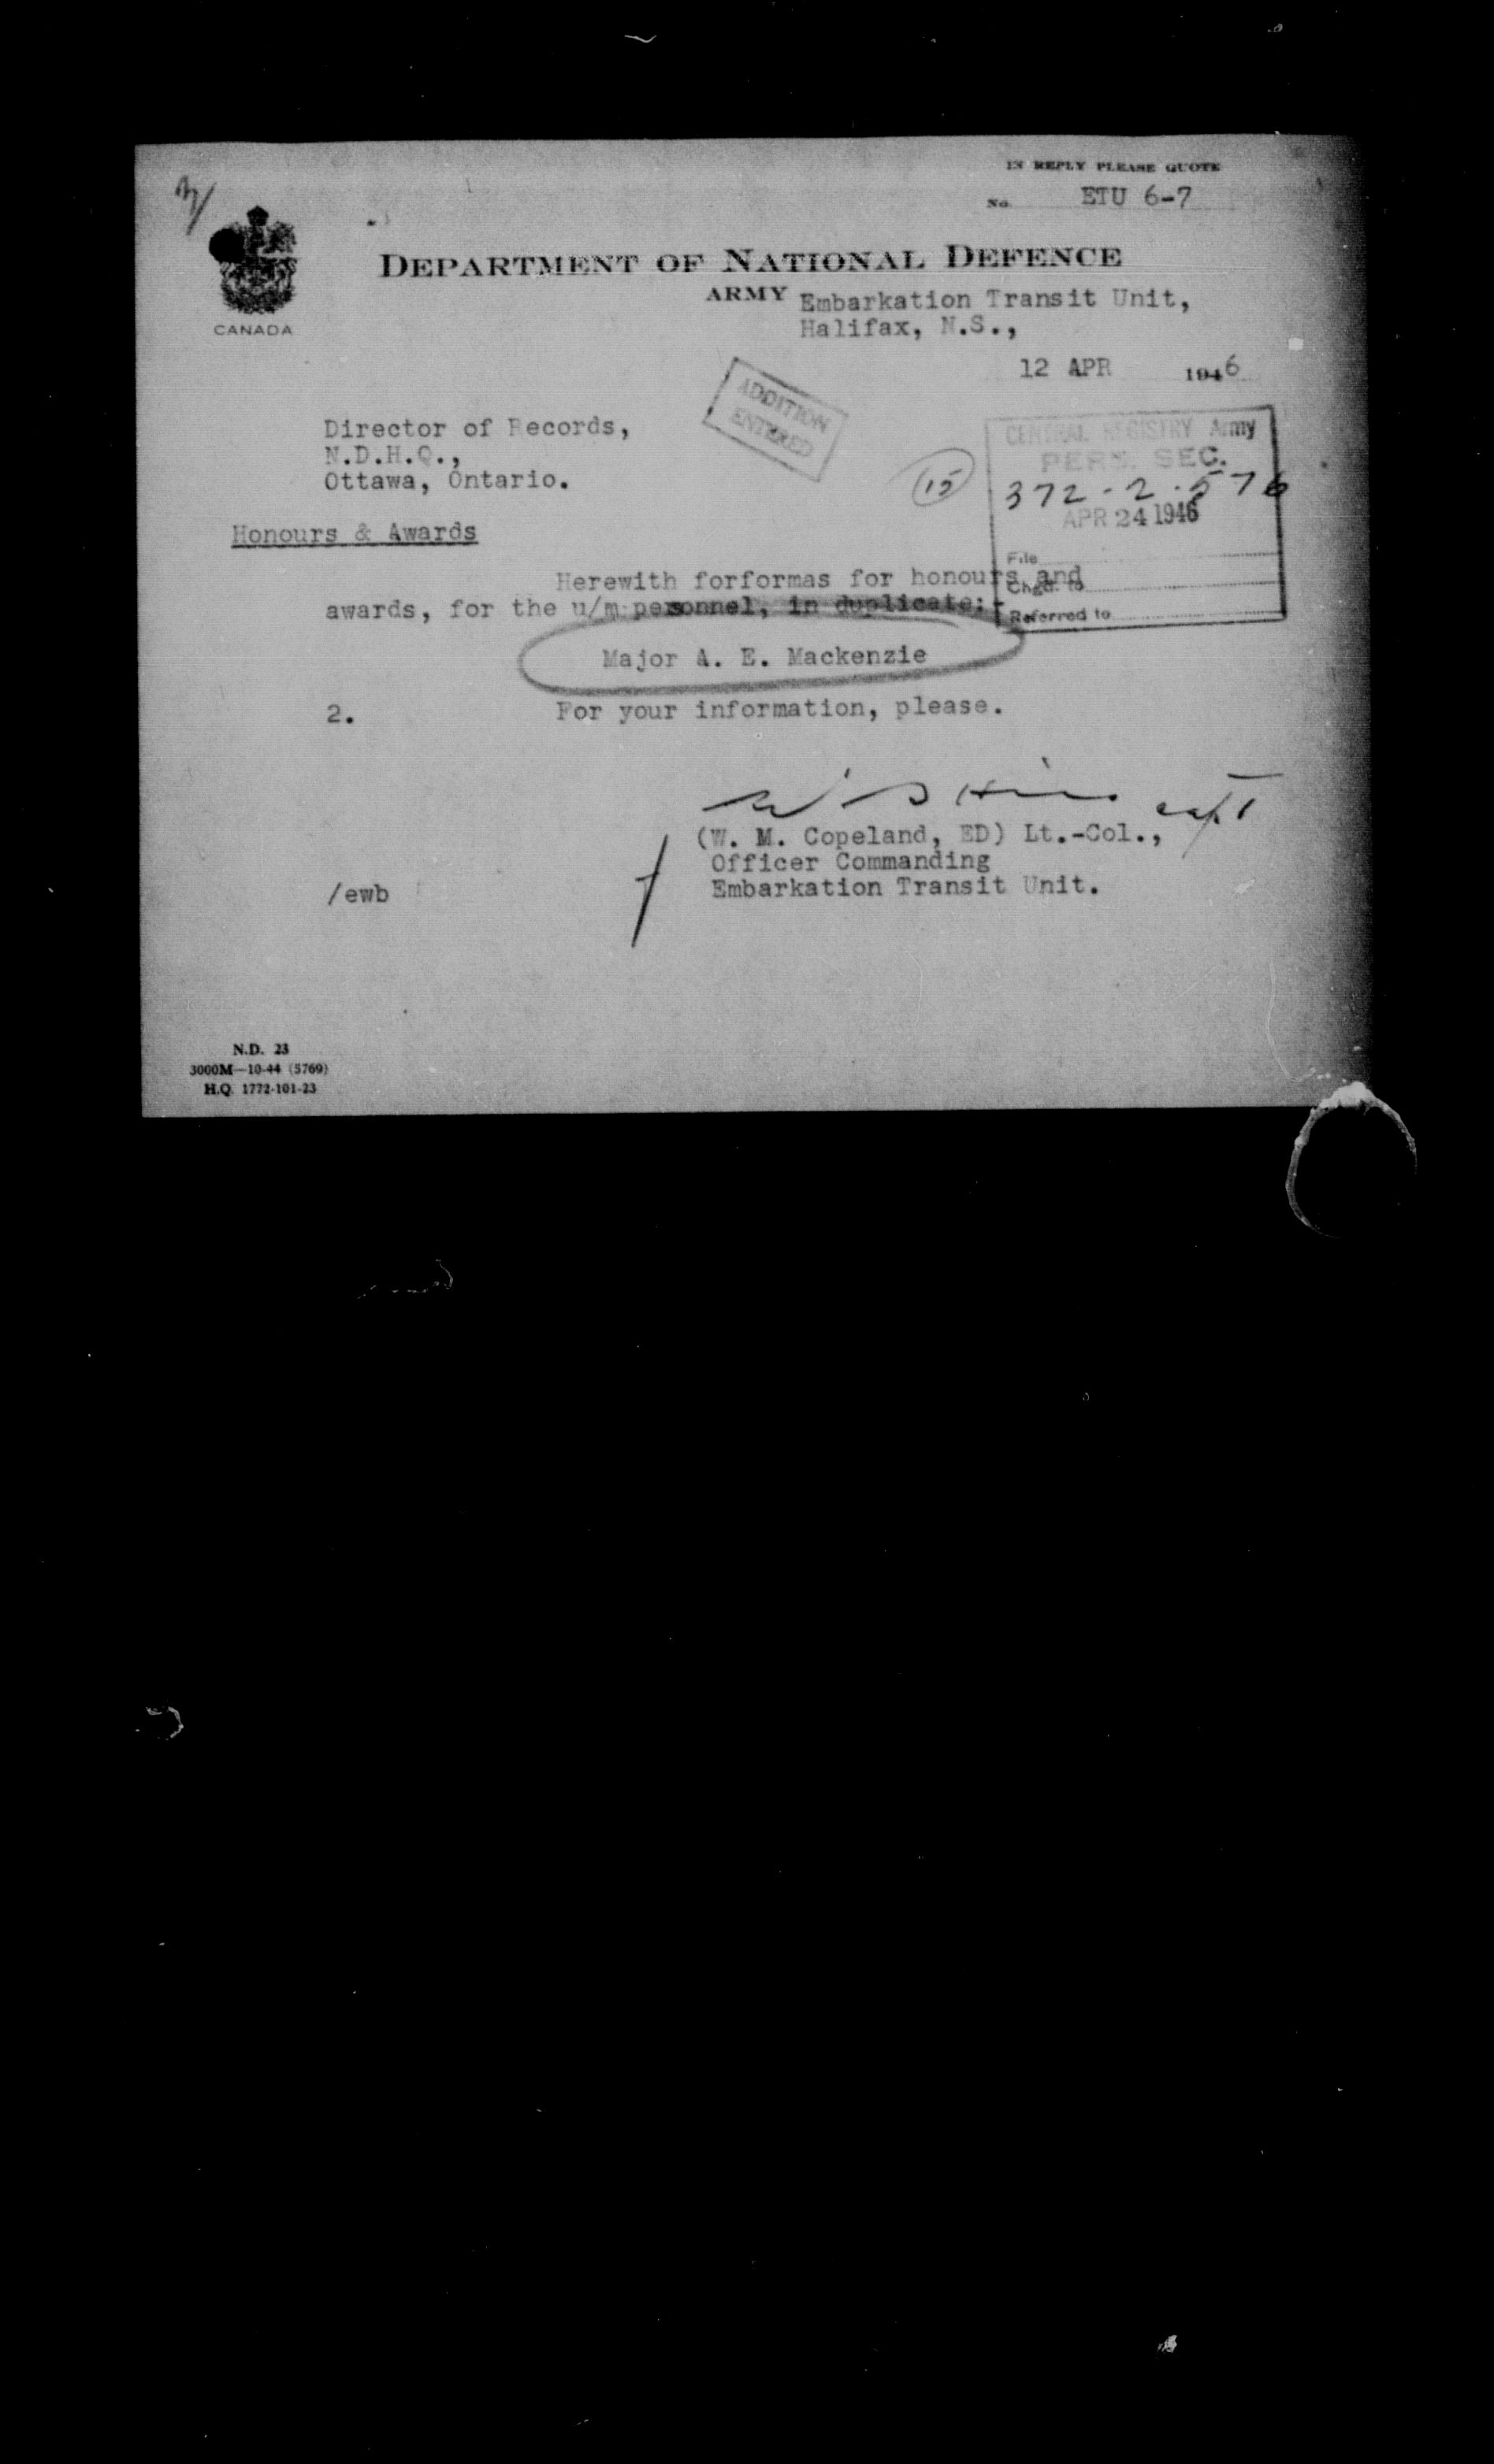 IN REPLY PLEASE QUOTE
No. ETU 6-7
DEPARTMENT OF NATIONAL DEFENCE
ARMY
CANADA
Embarkation Transit Unit,
Halifax, N.S.,
12 APR 1946
ADDITION
ENTERED
Director of Records,
N.D.H.Q.,
Ottawa, Ontario.
15
CENTRAL REGISTRY Army
PERS. SEC.
372-2-576
APR 24 1946
File
Chgd. to
Referred to
Honours & Awards
Herewith forformas for honours and
awards, for the u/m personnel, in duplicate:-
Major A. E. Mackenzie
2. For your information, please.
capt
(W. M. Copeland, ED) Lt.-Col.,
Officer Commanding
Embarkation Transit Unit.
/ewb
N.D. 23
3000M—10-44 (5769)
H.Q. 1772-101-23